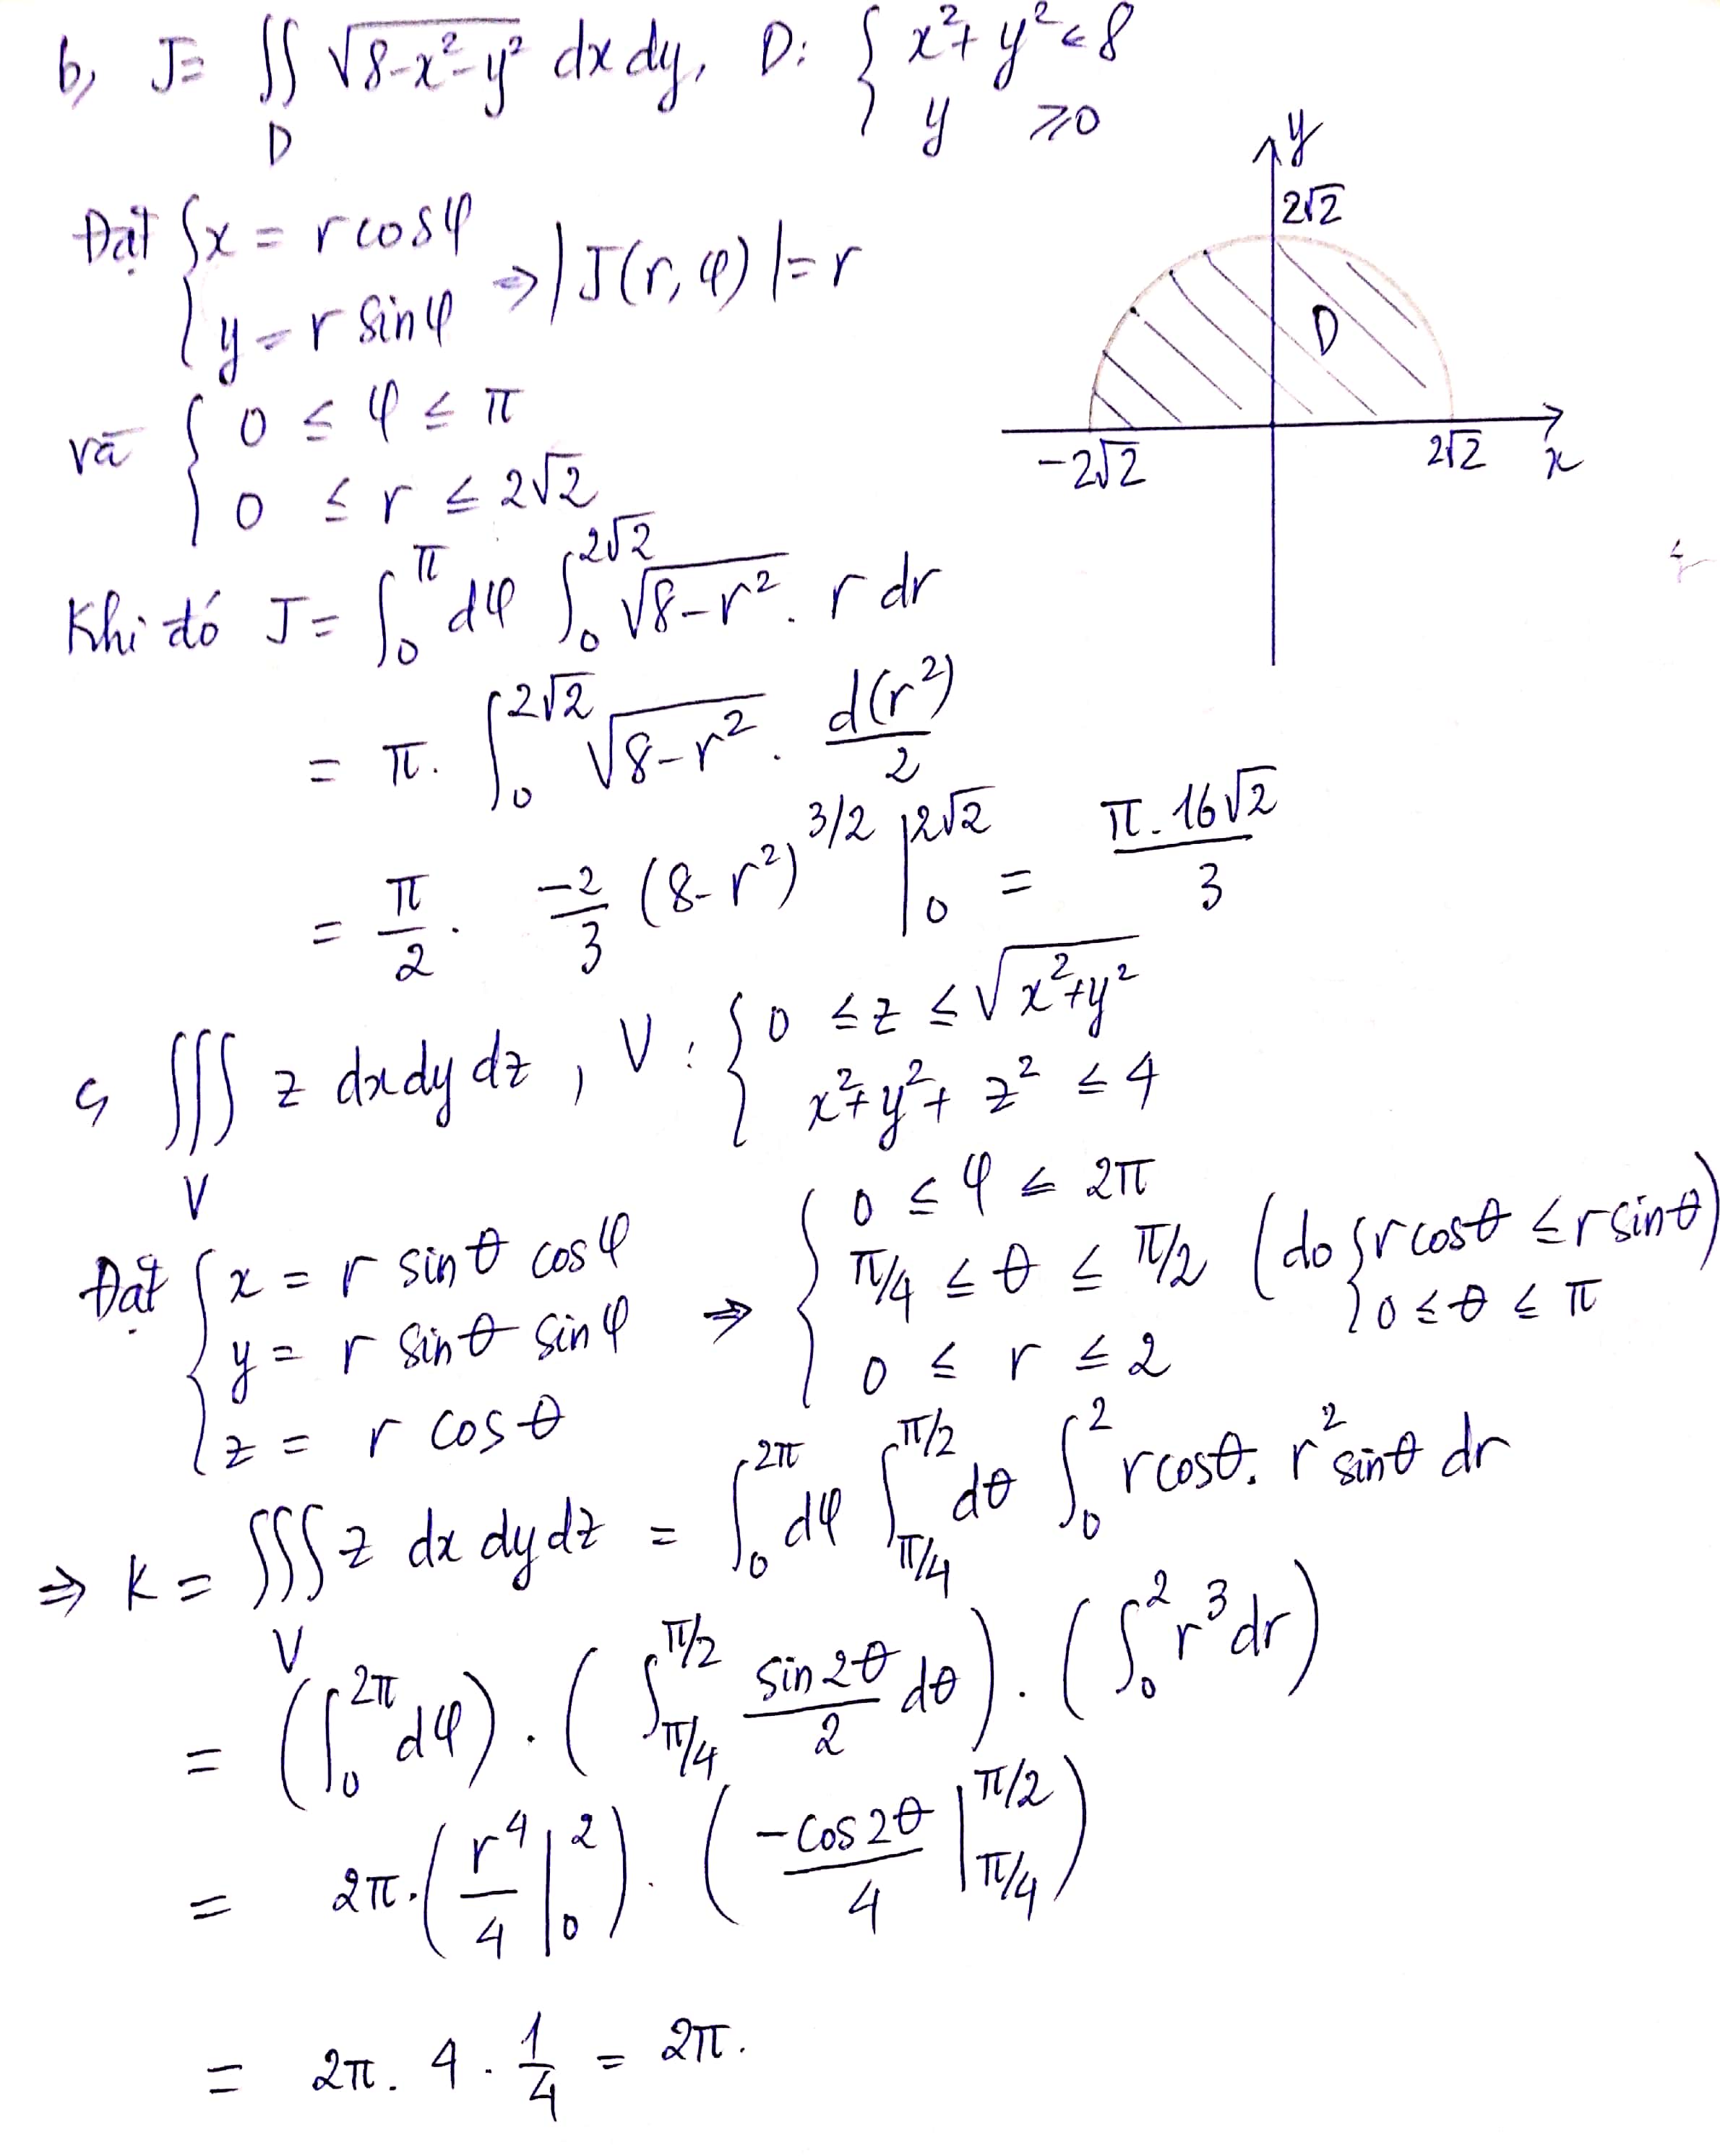 b, J = ∬_D √(8-x²-y²) dx dy, D: { x² + y² < 8
y ≥ 0
Đặt { x = r cosφ
y = r sinφ ⇒ |J(r, φ)| = r
và { 0 ≤ φ ≤ π
0 ≤ r ≤ 2√2
y
2√2
D
-2√2
2√2
x
Khi đó J = ∫_0^π dφ ∫_0^{2√2} √(8-r²) . r dr
= π. ∫_0^{2√2} √(8-r²) . d(r²)/2
= π/2 . -2/3 (8-r²)^{3/2} |_0^{2√2} = π.16√2/3
c, ∭_V z dx dy dz , V : { 0 ≤ z ≤ √(x²+y²)
x² + y² + z² ≤ 4
Đặt { x = r sinθ cosφ
y = r sinθ sinφ
z = r cosθ
⇒ { 0 ≤ φ ≤ 2π
π/4 ≤ θ ≤ π/2 (do { r cosθ ≤ r sinθ
0 ≤ θ ≤ π )
0 ≤ r ≤ 2
⇒ K = ∭_V z dx dy dz = ∫_0^{2π} dφ ∫_{π/4}^{π/2} dθ ∫_0^2 r cosθ. r² sinθ dr
= (∫_0^{2π} dφ) . (∫_{π/4}^{π/2} sin2θ/2 dθ) . (∫_0^2 r³ dr)
= 2π. (r⁴/4 |_0^2) . (-cos2θ/4 |_{π/4}^{π/2})
= 2π. 4 . 1/4 = 2π.